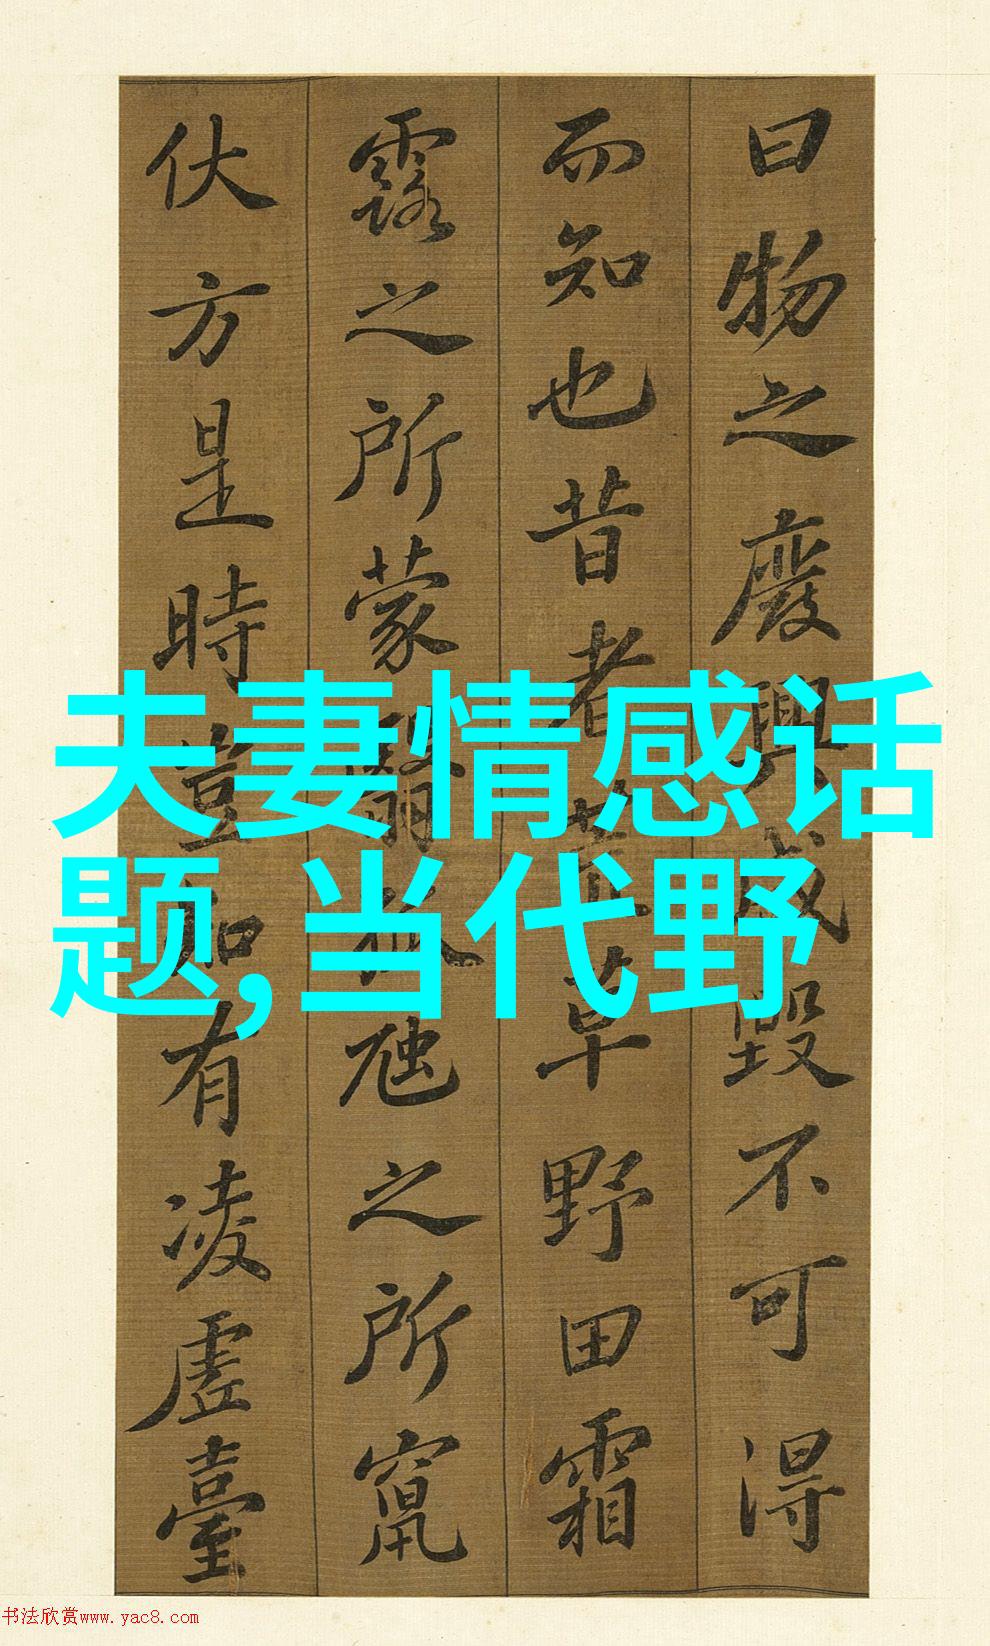 曰物之廢興成毀不可得
而知也昔者荒草野田霜
露之所蒙翳狐虺之所竄
伏方是時豈知有凌虛臺
夫妻情感话
题,当代野
书法欣赏www.yac8.com